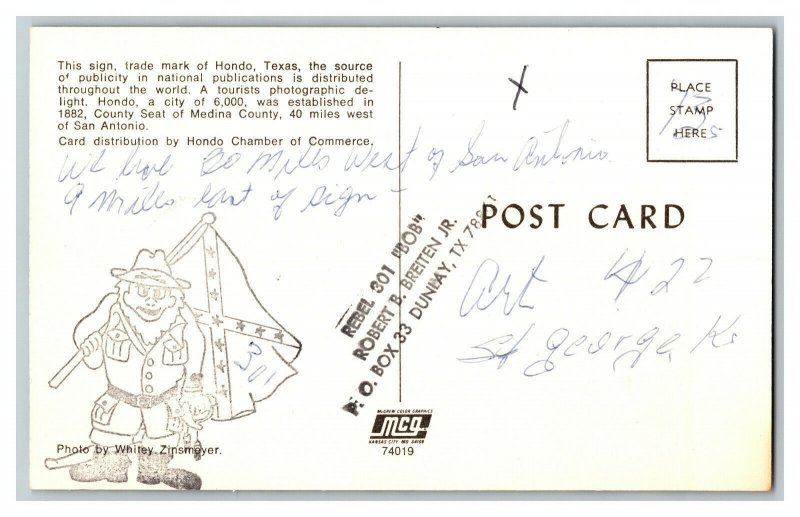 This sign, trade mark of Hondo, Texas, the source
of publicity in national publications is distributed
throughout the world. A tourists photographic de-
light. Hondo, a city of 6,000, was established in
1882, County Seat of Medina County, 40 miles west
of San Antonio.
Card distribution by Hondo Chamber of Commerce.
We live 30 Miles West of San Antonio
9 miles East of sign –
X
PLACE
STAMP
HERE
POST CARD
REBEL 301 "BOB"
ROBERT B. BREITEN JR.
P. O. BOX 33 DUNLAY, TX 78861
Art # 22
St George Ks
301
Photo by Whitey Zinsmeyer.
McGREW COLOR GRAPHICS
mcg
KANSAS CITY, MO. 64108
74019